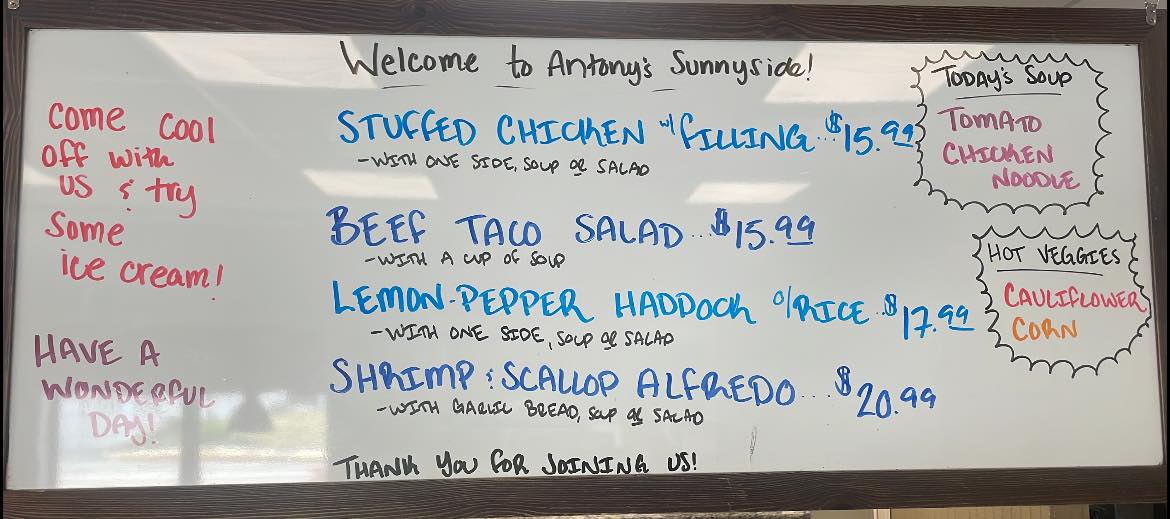 Welcome to Antony's Sunnyside!
Come cool
off with
us & try
some
ice cream!
HAVE A
WONDERFUL
DAY!
STUFFED CHICKEN w/ FILLING...$15.99
-WITH ONE SIDE, SOUP OR SALAD
BEEF TACO SALAD...$15.99
-WITH A CUP OF SOUP
LEMON-PEPPER HADDOCK o/RICE...$17.99
-WITH ONE SIDE, SOUP OR SALAD
SHRIMP & SCALLOP ALFREDO...$20.99
-WITH GARLIC BREAD, SOUP OR SALAD
THANK YOU FOR JOINING US!
TODAY'S SOUP
TOMATO
CHICKEN
NOODLE
HOT VEGGIES
CAULIFLOWER
CORN